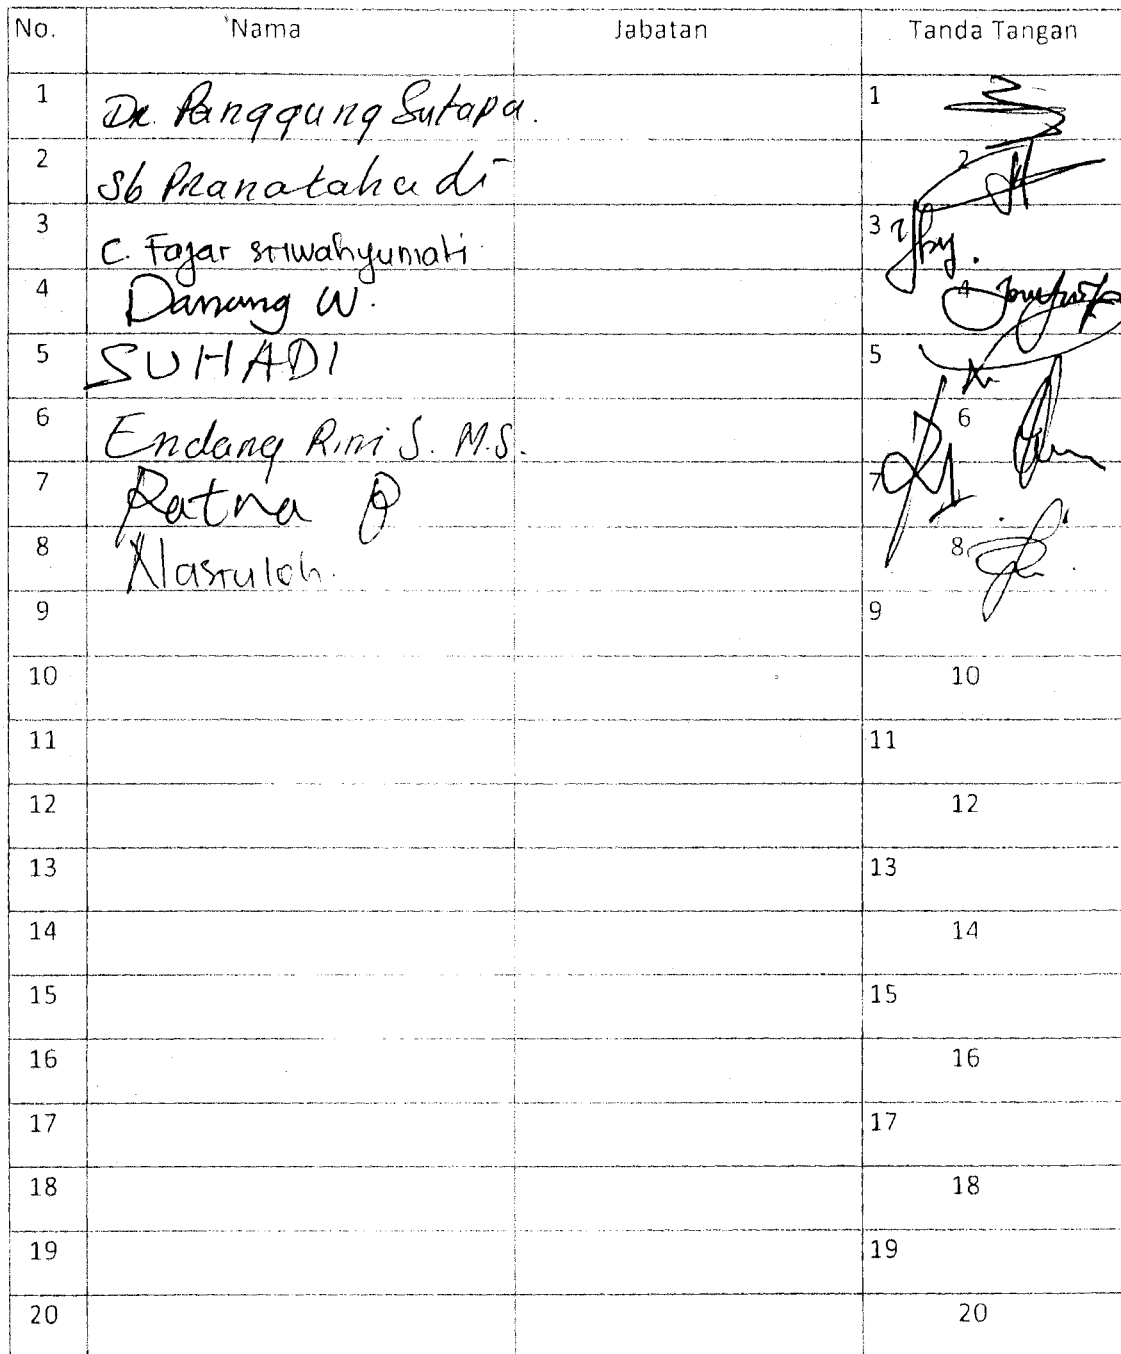 No. Nama Jabatan Tanda Tangan
1 Dr. Panggung Sutapa. 1
2 Sb Pranatahadi 2
3 C. Fajar sriwahyuniati 3
4 Danang W. 4
5 SUHADI 5
6 Endang Rini S. M.S. 6
7 Ratna B 7
8 Nasruloh. 8
9 9
10 10
11 11
12 12
13 13
14 14
15 15
16 16
17 17
18 18
19 19
20 20